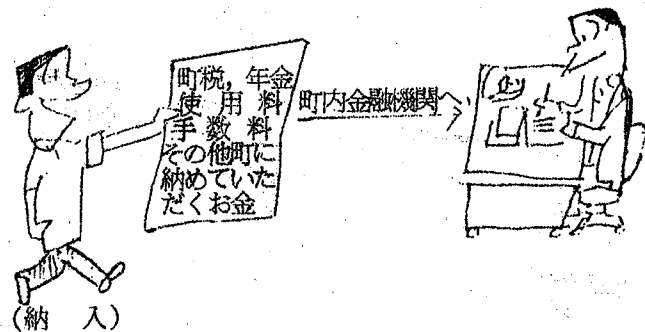 町税，年金
使用料
手数料
その他町に
納めていた
だくお金
町内金融機関へ
(納　入)